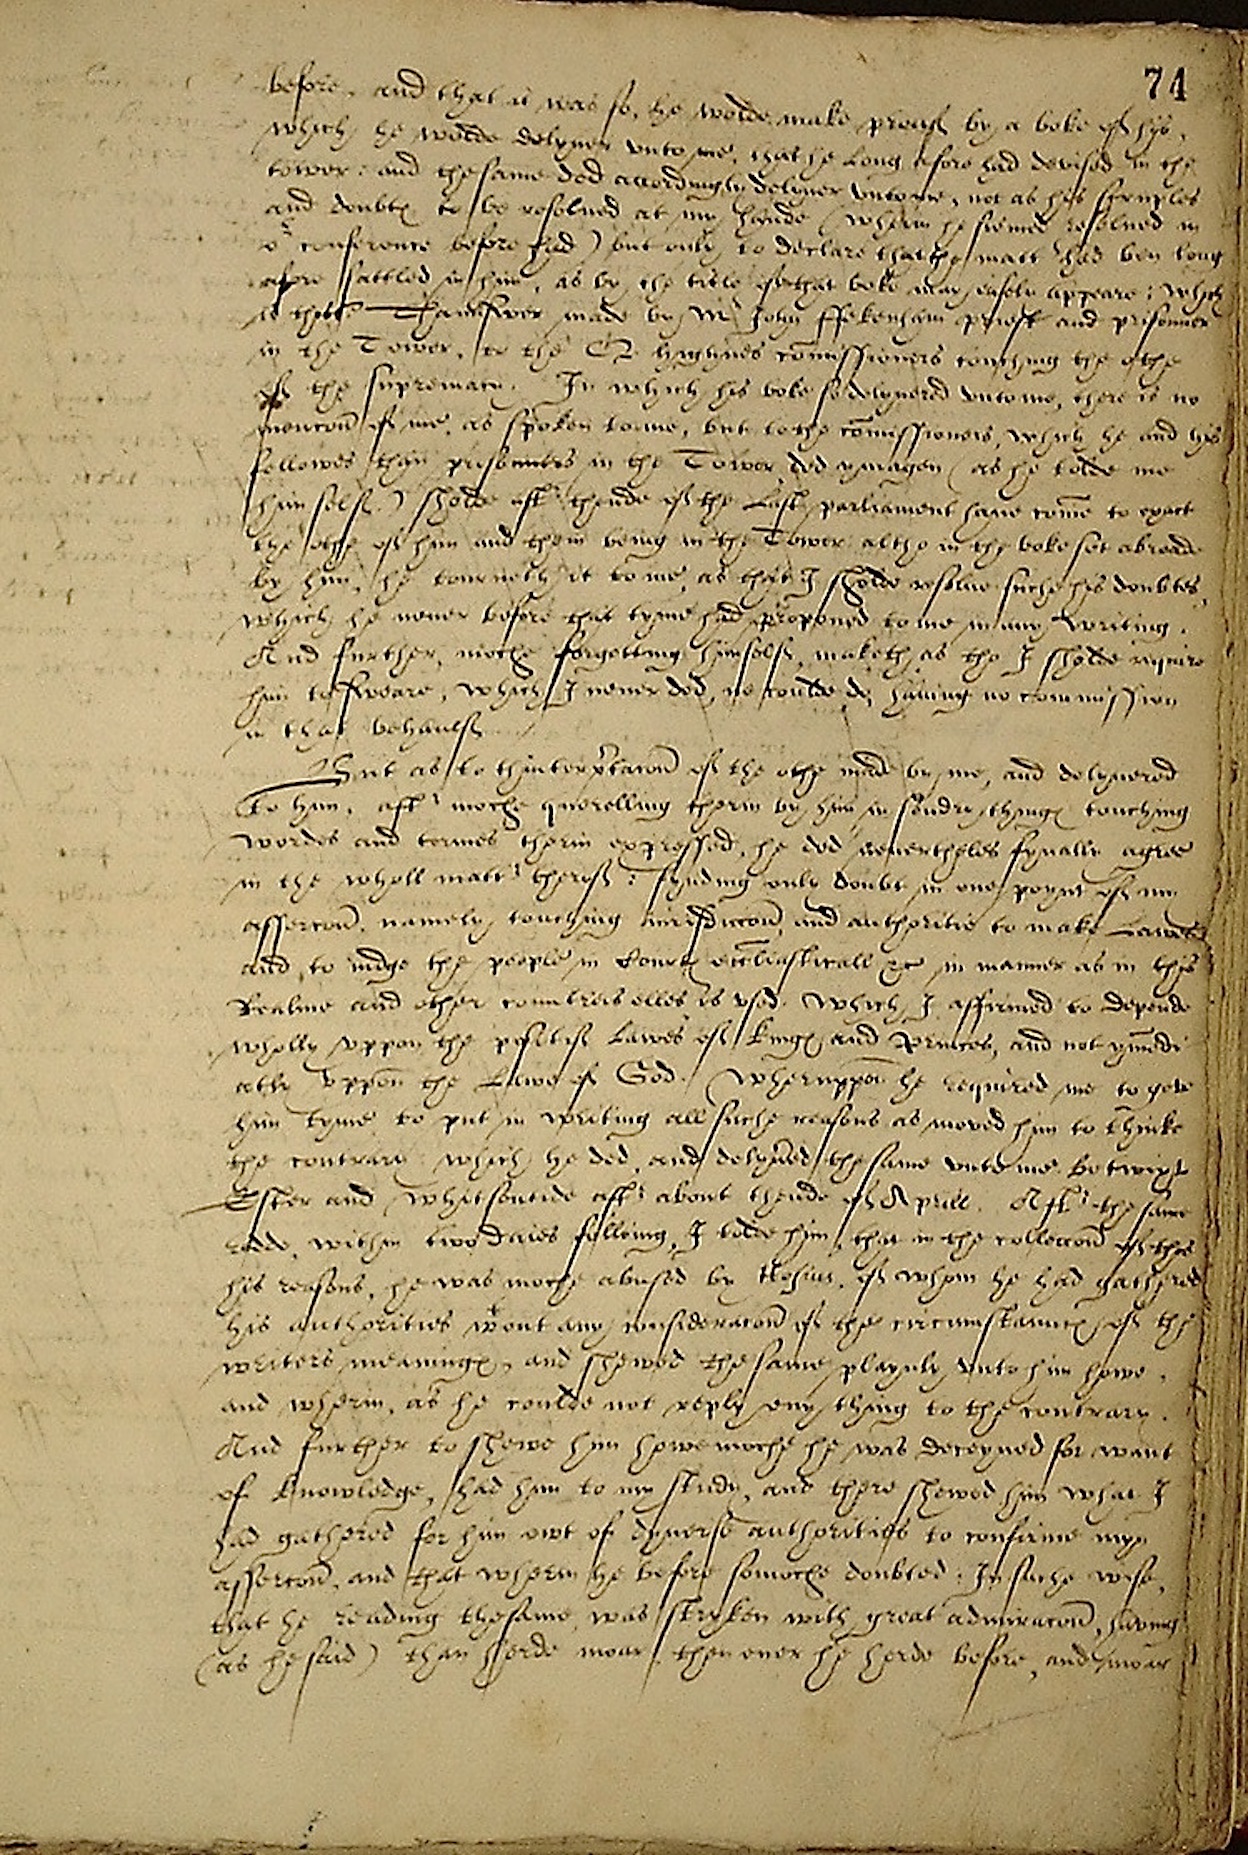 74
before, and that it was so, he wolde make proufe by a boke of his,
which he wolde delyver unto me, that he long afore had devised in the
tower: and the same ded accordingly delyver unto me, not as his scruples
and doubtes to be resolued at my hande (wherin he siemed resolued in
or conference before had) but only to declare that the matt had ben long
afore sattled in him, as by the title of that boke may easely appeare: which
is this. Thanswer made by Mr John Ffekenham priest and prisonner
in the Tower, to the Q. highnes comissioners touching the othe
of the supremacy. In which his boke so delyuered vnto me, there is no
mencon of me, as spoken to me, but to the comissioners, which he and his
fellowes than prisoners in the Tower, ded ymagen (as he tolde me
him self) sholde aft thende of the Last parliament haue come to exact
the othe of him and them being in the Tower altho in the boke set abroade
by him, he tourneth it to me, as that I sholde resolue suche his doubtes,
which he neuer before that tyme had proponed to me in any writing.
And further, moche forgetting himself, maketh as tho I sholde require
him to sweare, which I neuer ded, ne coulde do, having no commission
in that behaulf.
But as to thinterptacon of the othe made by me, and delyuered
to him, aft moche querelling therin by him in sondry thinges touching
wordes and termes therin expressed, he ded neuertheles fynally agree
in the wholl matt therof: fynding only doubt in one poynt of my
assercon, namely, touching iurisdiccon, and authoritie to make Lawes
and to iudge the people in Courtes eccliasticall &c in manner as in this
Realme and other countreis elles is vsed. Which I affirmed to depende
wholly vppon the positif Lawes of Kinges and Princes, and not ymedi
atly vppon the Lawe of God. Wheruppon he required me to geve
him tyme to put in writing all suche reasons as moved him to thinke
the contrary which he ded, and delyued the same vnto me betwixt
Ester and Whitsontide aft about thende of Aprill. Aft the same
redde, within two daies folloing, I tolde him, that in the colleccon of thes
his reasons, he was moche abused by Hosius, of whom he had gathered
his authorities wtout any consideracon of the circumstaunces of the
writers meaninges, and shewed the same playnly vnto him howe,
and wherin, as he coulde not reply eny thing to the contrary.
And further to shewe him howe moche he was deceyued for want
of knowledge, had him to my study, and there shewed him what I
had gathered for him owt of dyuerse authorities to confirme myn
assercon, and that wherin he before somoche doubted: In suche wise,
that he reading the same, was stryken with great admiracon, having
(as he said) than herde moar, then euer he herde before, and moar